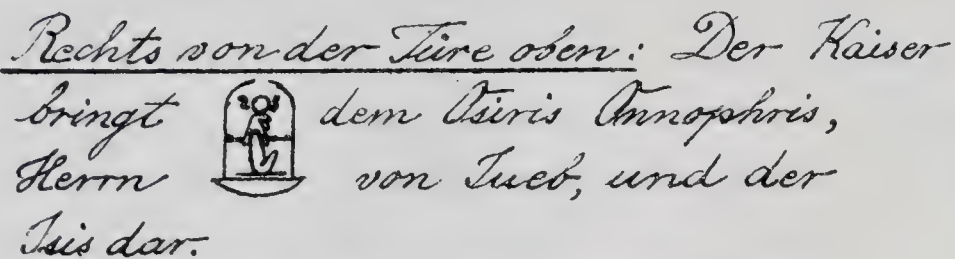 Rechts von der Türe oben: Der Kaiser
bringt dem Osiris Onnophris,
Herrn von Tueb, und der
Isis dar.